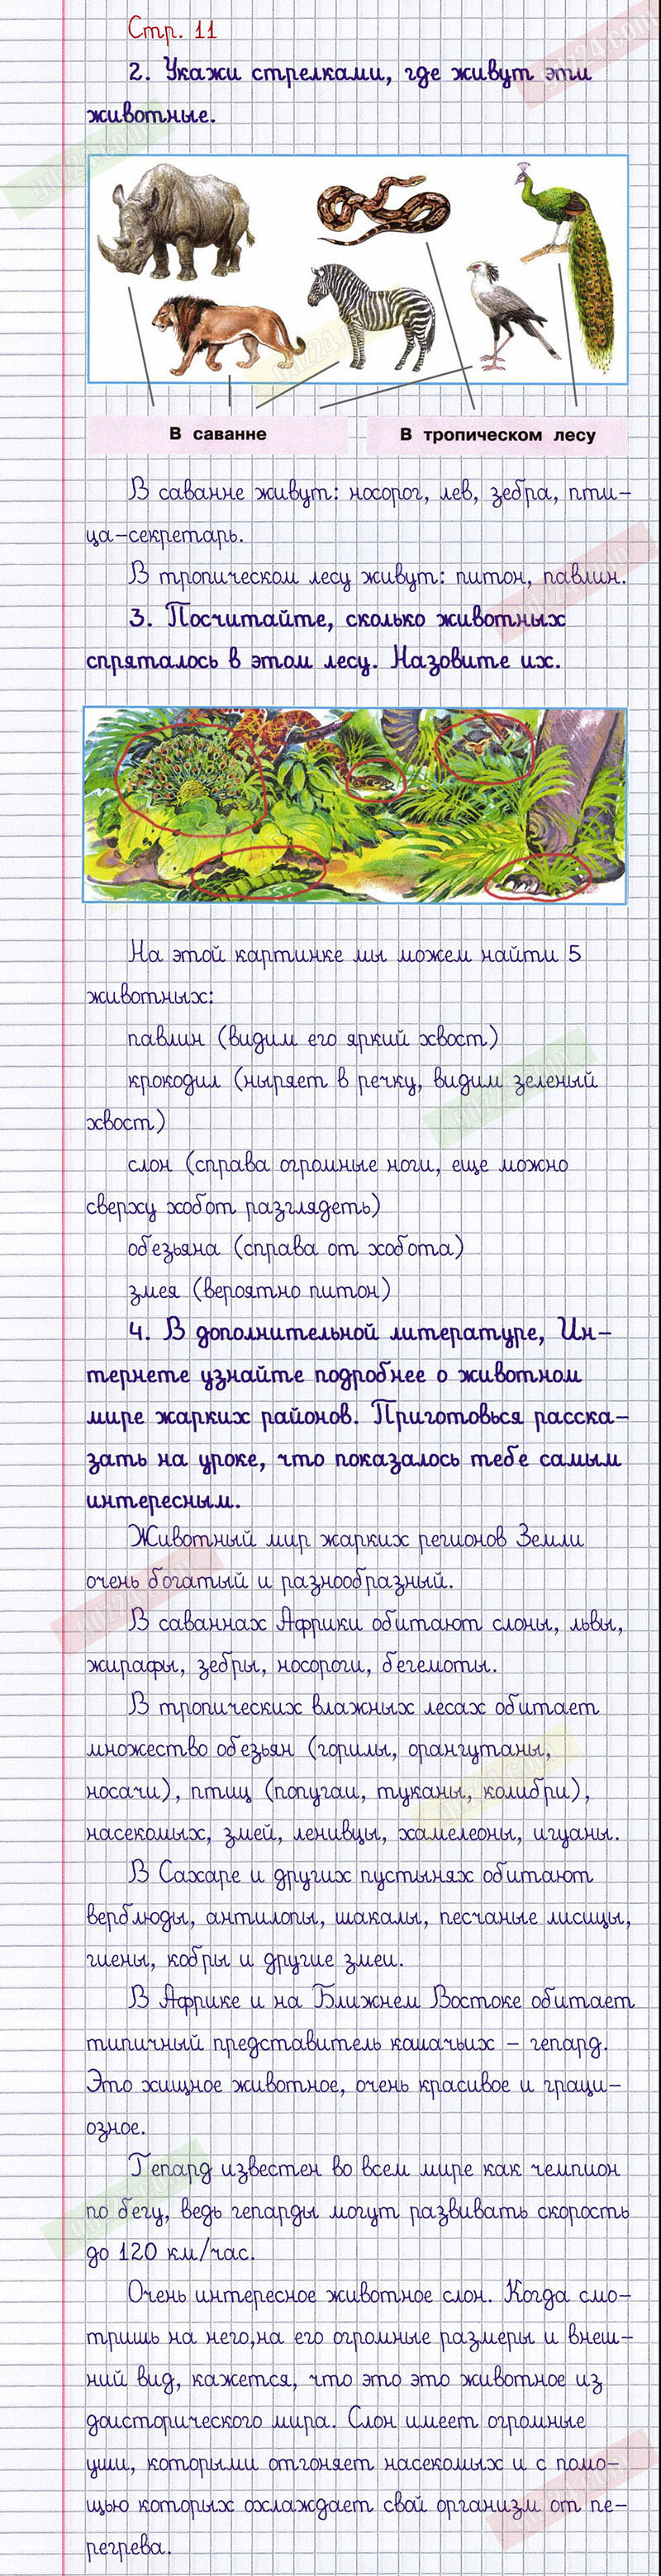 Стр. 11
2. Укажи стрелками, где живут эти
животные.
В саванне
В тропическом лесу
В саванне живут: носорог, лев, зебра, пти-
ца-секретарь.
В тропическом лесу живут: питон, павлин.
3. Посчитайте, сколько животных
спряталось в этом лесу. Назовите их.
На этой картинке мы можем найти 5
животных:
павлин (видим его яркий хвост)
крокодил (ныряет в речку, видим зеленый
хвост)
слон (справа огромные ноги, еще можно
сверху хобот разглядеть)
обезьяна (справа от хобота)
змея (вероятно питон)
4. В дополнительной литературе, Ин-
тернете узнайте подробнее о животном
мире жарких районов. Приготовься расска-
зать на уроке, что показалось тебе самым
интересным.
Животный мир жарких регионов Земли
очень богатый и разнообразный.
В саваннах Африки обитают слоны, львы,
жирафы, зебры, носороги, бегемоты.
В тропических влажных лесах обитает
множество обезьян (горилы, орангутаны,
носачи), птиц (попугаи, туканы, колибри),
насекомых, змей, ленивцы, хамелеоны, игуаны.
В Сахаре и других пустынях обитают
верблюды, антилопы, шакалы, песчаные лисицы,
гиены, кобры и другие змеи.
В Африке и на Ближнем Востоке обитает
типичный представитель кошачьих - гепард.
Это хищное животное, очень красивое и граци-
озное.
Гепард известен во всем мире как чемпион
по бегу, ведь гепарды могут развивать скорость
до 120 км/час.
Очень интересное животное слон. Когда смо-
тришь на него,на его огромные размеры и внеш-
ний вид, кажется, что это это животное из
доисторического мира. Слон имеет огромные
уши, которыми отгоняет насекомых и с помо-
щью которых охлаждает свой организм от пе-
регрева.